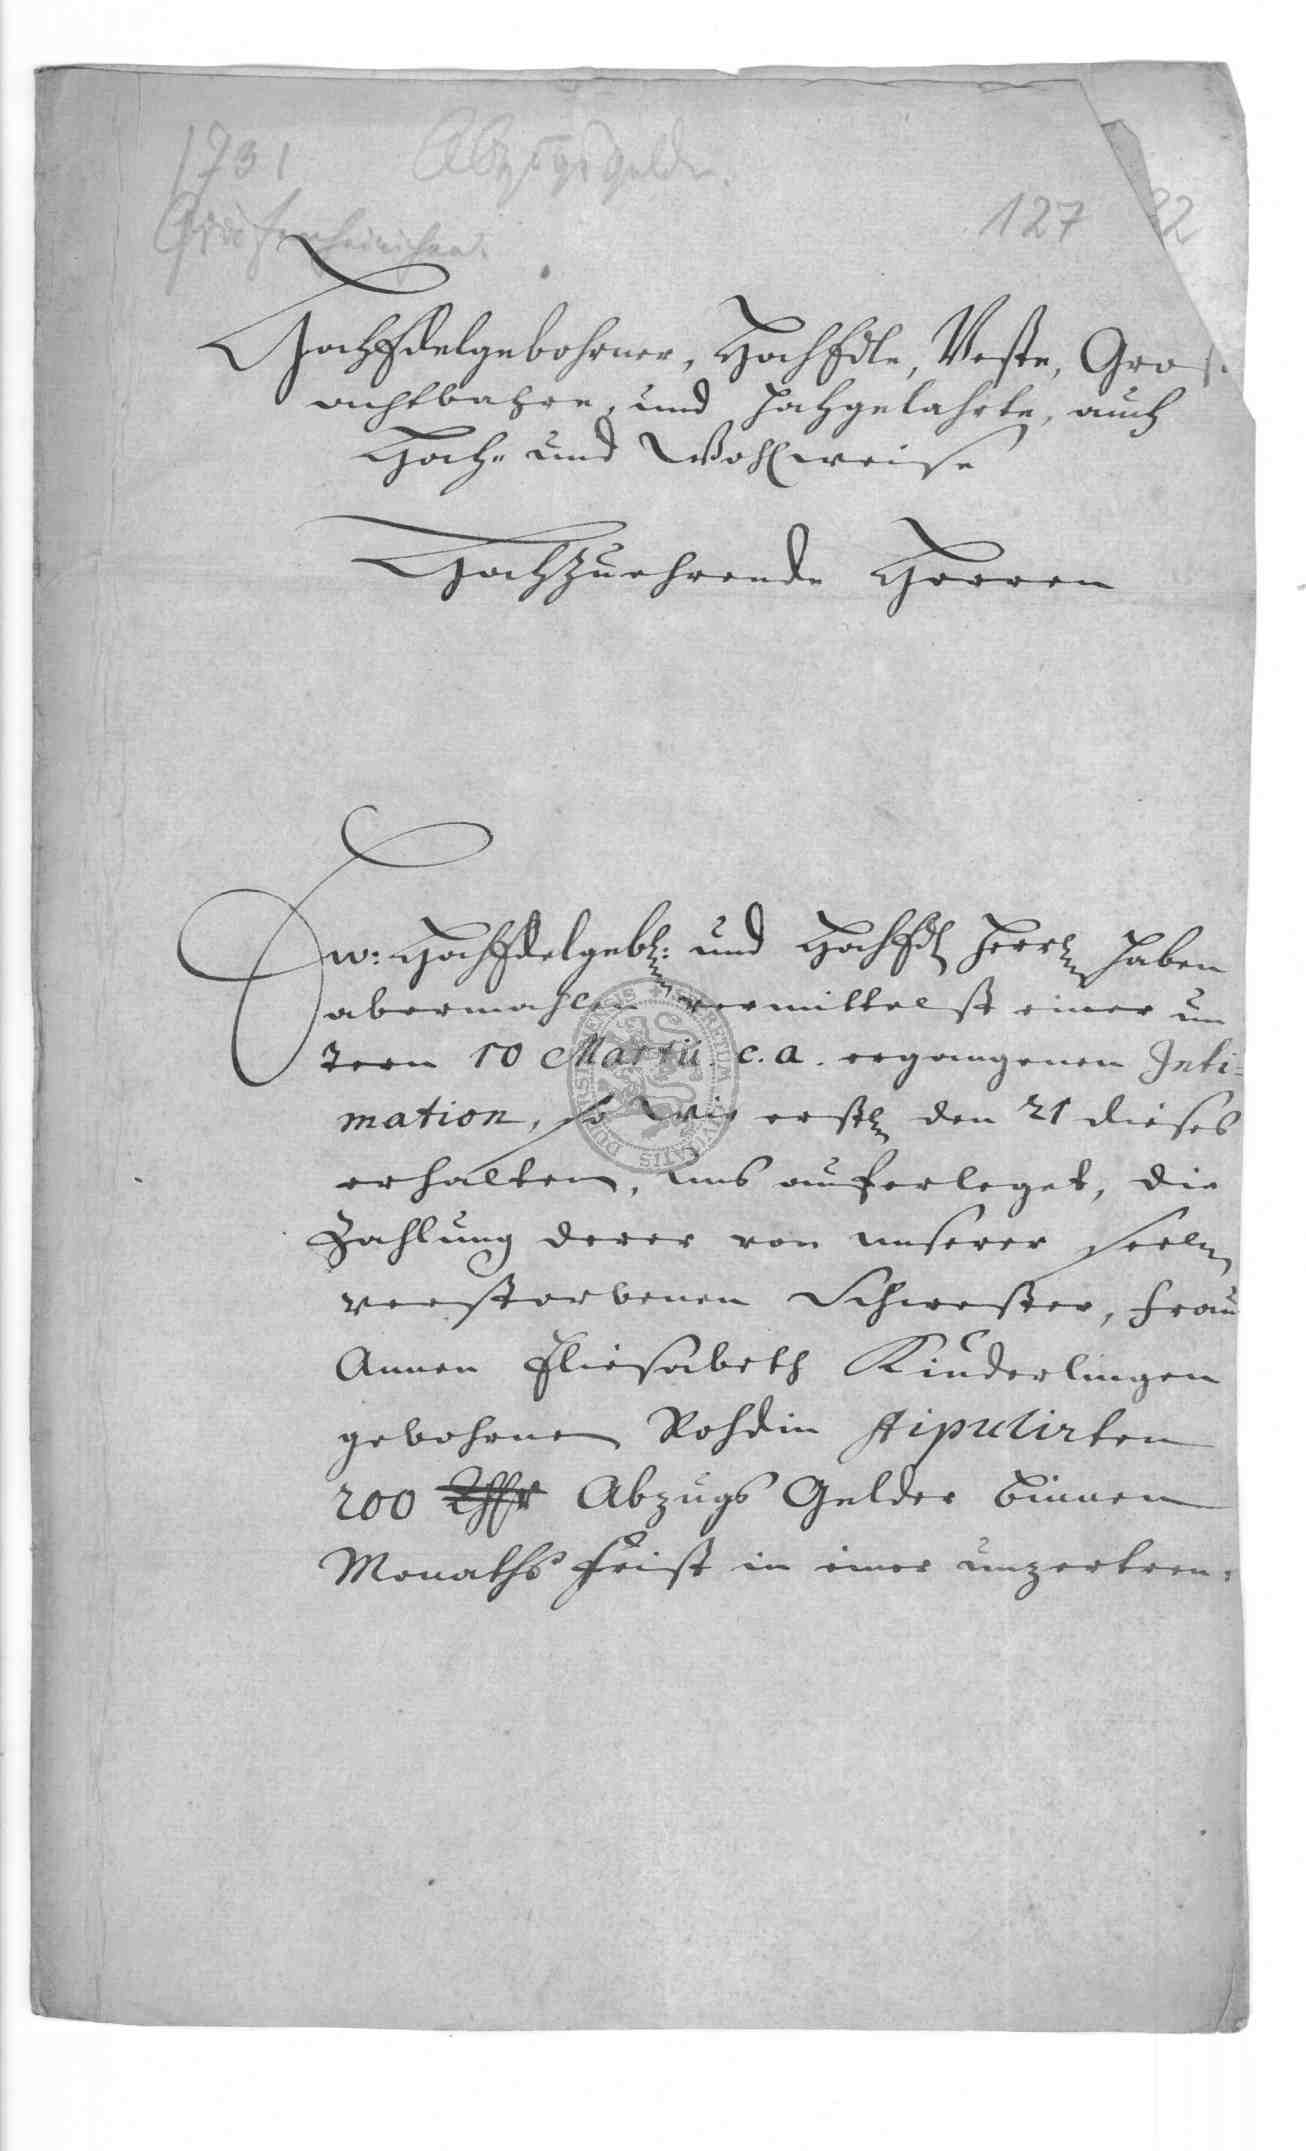 1731 Abzugsgelder.
Gräfenhainichen.
127 22
HochEdelgebohrner, HochEdle, Veste, Gros-
achtbahre, und Hochgelahrte, auch
Hoch- und Wohlweise
Hochzuehrende Herren
Ew: HochEdelgebh: und HochEdl Herrl haben
abermahlen vermittelst einer un
term 10 Martii c. a. ergangenen Inti-
mation, so wir erstl den 21 dieses
erhalten, uns auferleget, die
Zahlung derer von unserer seeln
verstorbenen Schwester, Frau
Annen Eliesabeth Kinderlingen
gebohrnen Rohdin stipulirten
200 Thlr Abzugs Gelder binnen
Monaths Frist in einer unzertren-